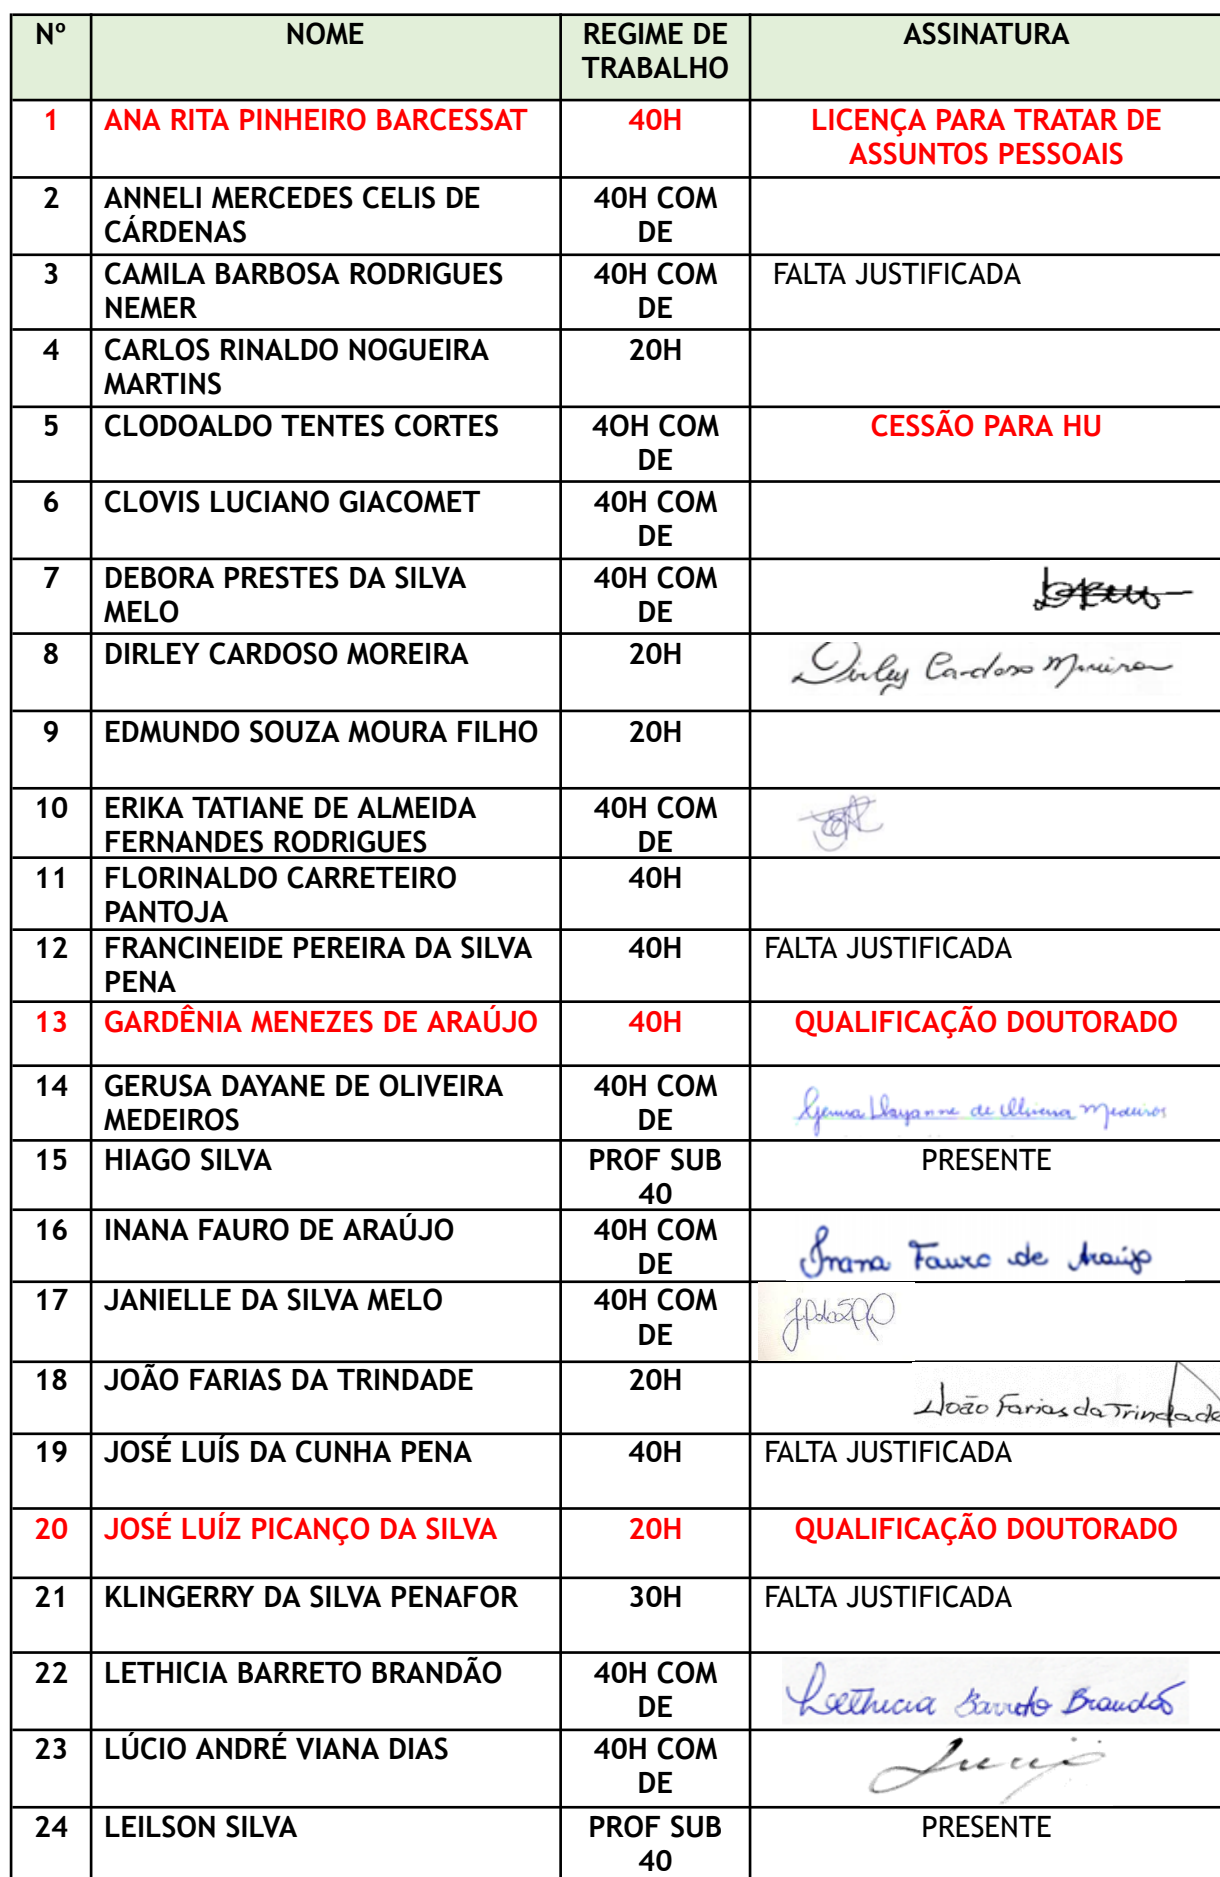 Nº NOME REGIME DE TRABALHO ASSINATURA
1 ANA RITA PINHEIRO BARCESSAT 40H LICENÇA PARA TRATAR DE
ASSUNTOS PESSOAIS
2 ANNELI MERCEDES CELIS DE 40H COM
CÁRDENAS DE
3 CAMILA BARBOSA RODRIGUES 40H COM FALTA JUSTIFICADA
NEMER DE
4 CARLOS RINALDO NOGUEIRA 20H
MARTINS
5 CLODOALDO TENTES CORTES 4OH COM CESSÃO PARA HU
DE
6 CLOVIS LUCIANO GIACOMET 40H COM
DE
7 DEBORA PRESTES DA SILVA 40H COM
MELO DE
8 DIRLEY CARDOSO MOREIRA 20H Dirley Cardoso Moreira
9 EDMUNDO SOUZA MOURA FILHO 20H
10 ERIKA TATIANE DE ALMEIDA 40H COM
FERNANDES RODRIGUES DE
11 FLORINALDO CARRETEIRO 40H
PANTOJA
12 FRANCINEIDE PEREIRA DA SILVA 40H FALTA JUSTIFICADA
PENA
13 GARDÊNIA MENEZES DE ARAÚJO 40H QUALIFICAÇÃO DOUTORADO
14 GERUSA DAYANE DE OLIVEIRA 40H COM Gerusa Dayanne de Oliveira Medeiros
MEDEIROS DE
15 HIAGO SILVA PROF SUB PRESENTE
40
16 INANA FAURO DE ARAÚJO 40H COM Inana Fauro de Araújo
DE
17 JANIELLE DA SILVA MELO 40H COM
DE
18 JOÃO FARIAS DA TRINDADE 20H João Farias da Trindade
19 JOSÉ LUÍS DA CUNHA PENA 40H FALTA JUSTIFICADA
20 JOSÉ LUÍZ PICANÇO DA SILVA 20H QUALIFICAÇÃO DOUTORADO
21 KLINGERRY DA SILVA PENAFOR 30H FALTA JUSTIFICADA
22 LETHICIA BARRETO BRANDÃO 40H COM Lethicia Barreto Brandão
DE
23 LÚCIO ANDRÉ VIANA DIAS 40H COM
DE
24 LEILSON SILVA PROF SUB PRESENTE
40